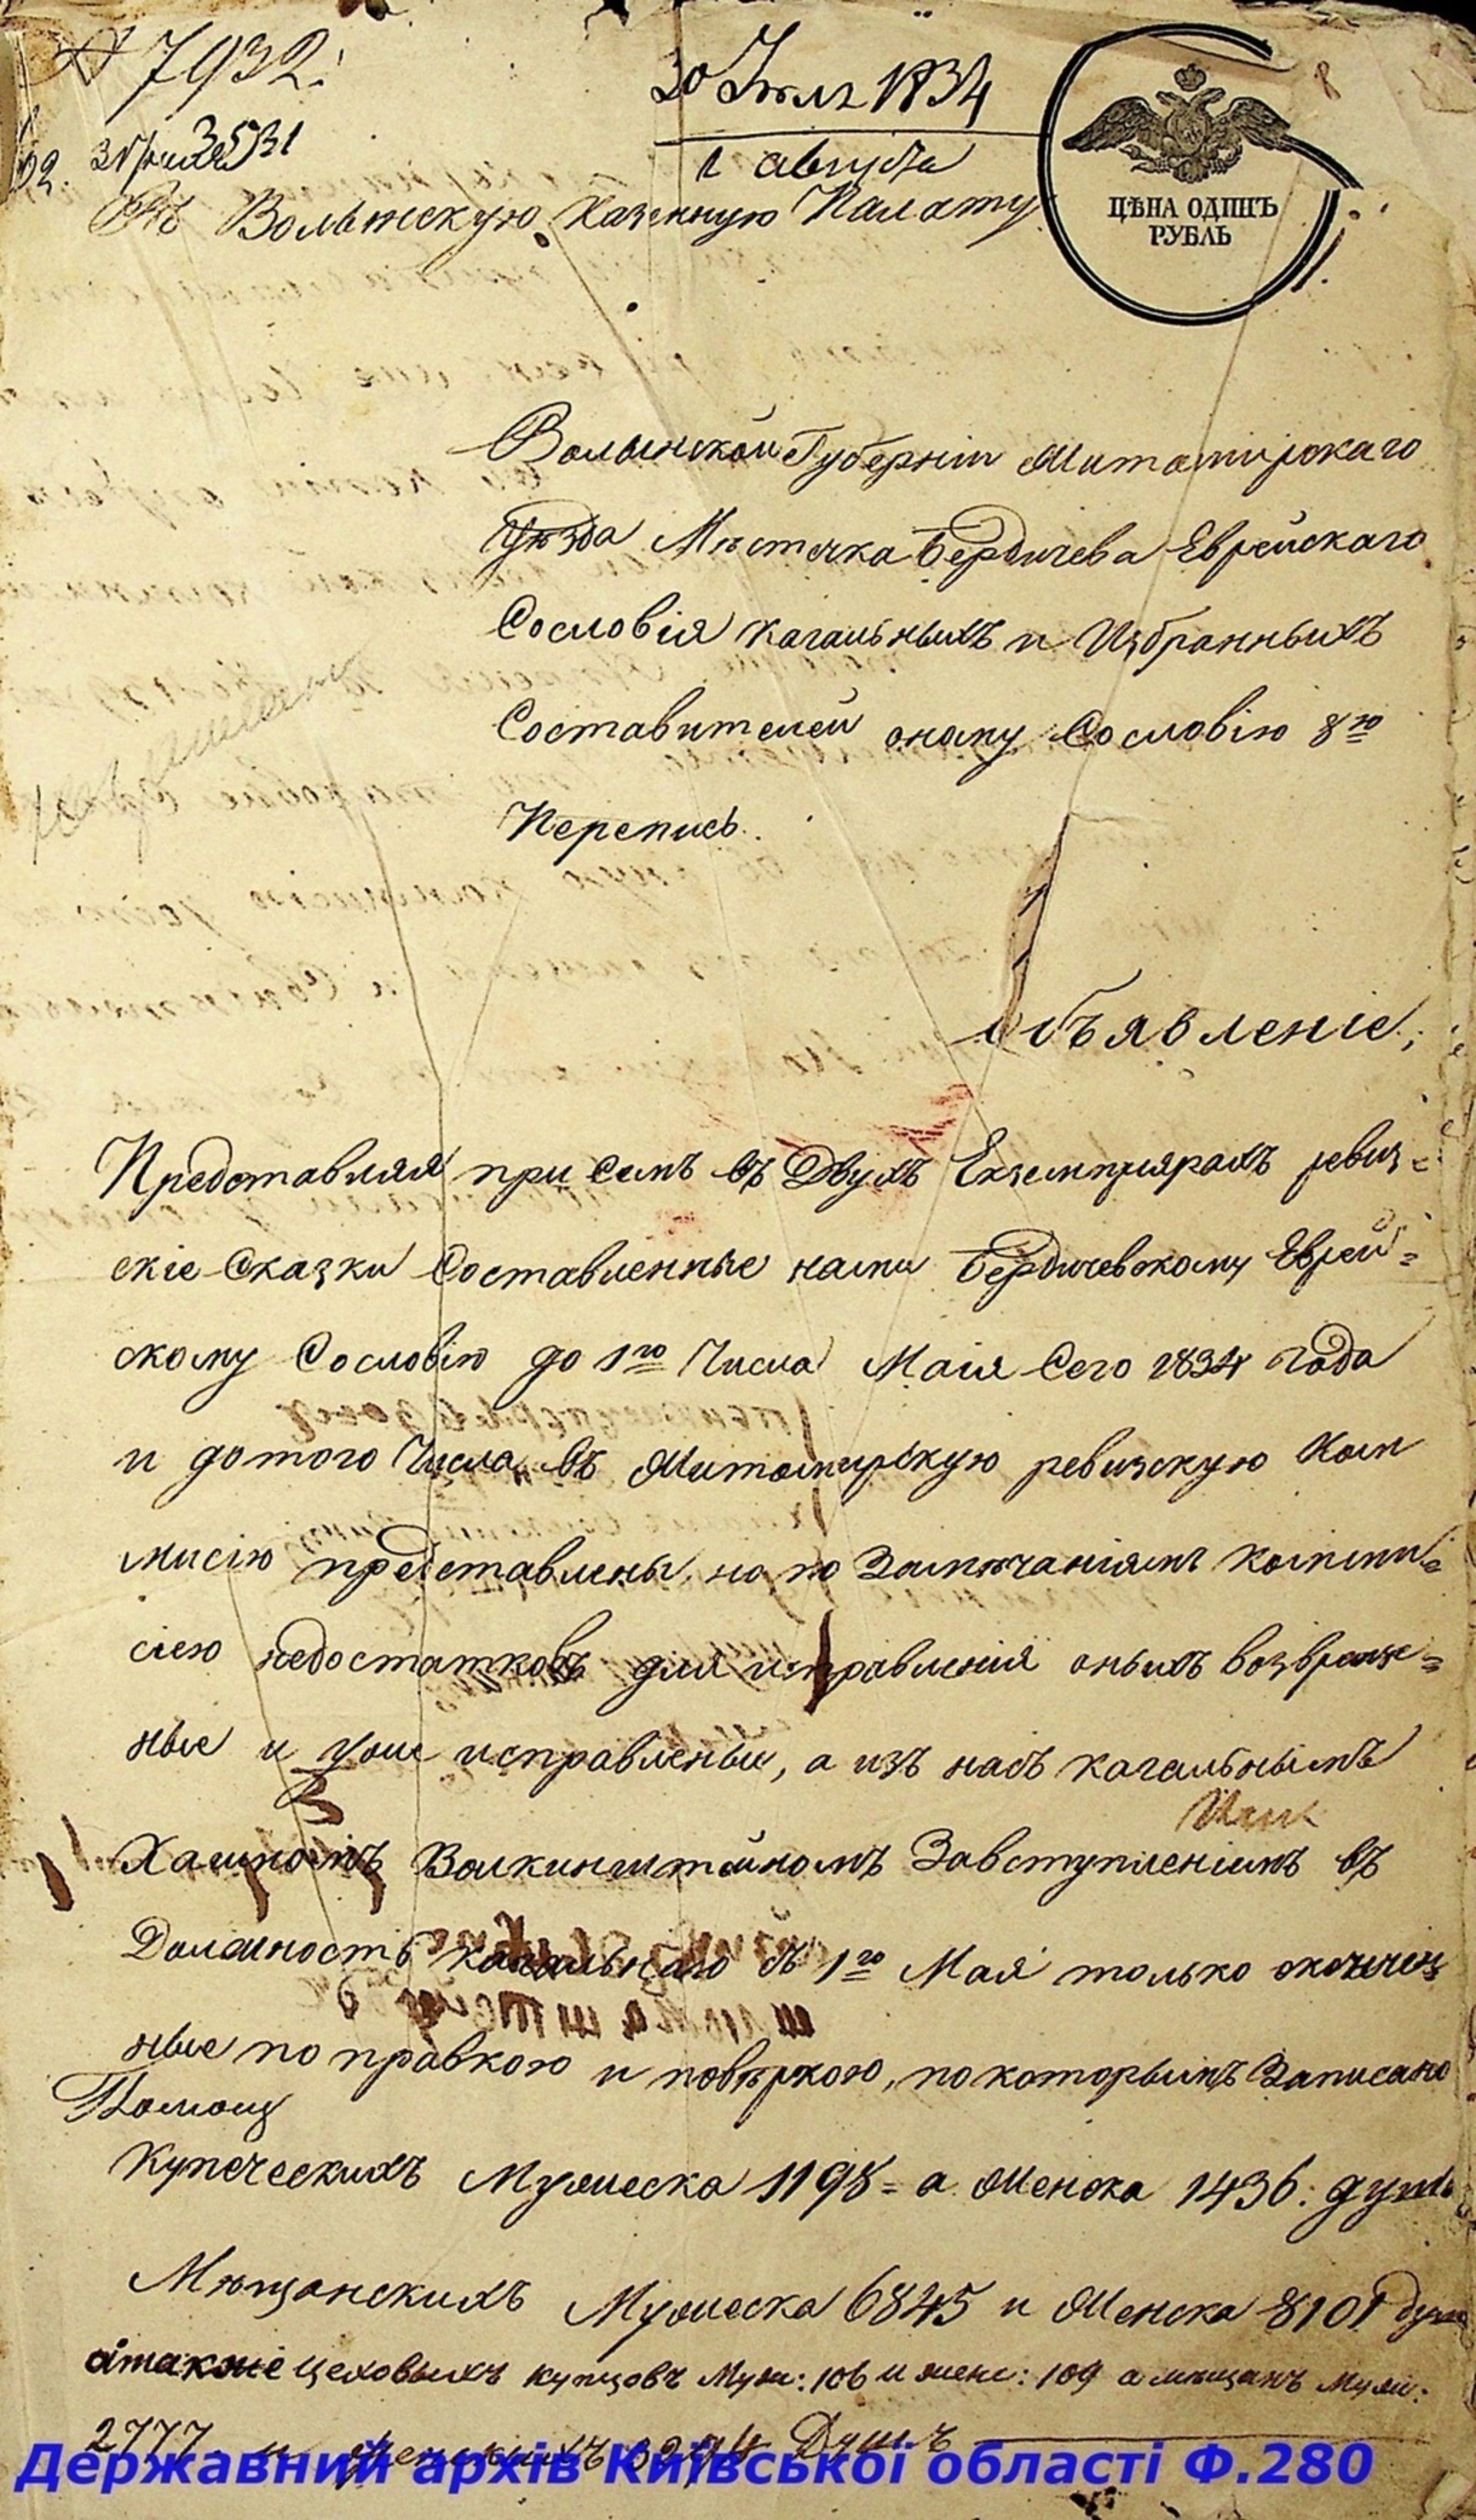 № 7932.
30 Июля 1834
3531
1 августа
ЦѢНА ОДИНЪ
РУБЛЬ
Въ Волынскую Казенную Палату
Волынской Губерніи Житомирскаго
Уѣзда Мѣстечка Бердичева Еврейскаго
Сословія кагальныхъ и Избранныхъ
Составителей оному Сословію 8ю
Перепись.
Объявленіе,
Представляя при семъ въ Двухъ Екземплярахъ ревиз=
скіе Сказки Составленные нами Бердичевскому Еврей=
скому Сословію до 1го Числа Маія Сего 1834 года
и до того Числа въ Житомирскую ревизскую Ком
мисію представлены, но по Замѣчаніямъ коммис=
сіею недостатковъ для исправленія оныхъ возвраще=
ные и уже исправлены, а изъ насъ кагальнымъ
Хаимомъ Волкинштейномъ Завступленіемъ въ
Должность кагальнаго съ 1го Мая только окончен
ные поправкою и повѣркою, по которымъ Записано
Купеческихъ Мужеска 1198 = а Женска 1436: душъ
Мѣщанскихъ Мужеска 6845 и Женска 8101 душъ
а также цеховыхъ купцовъ Муж: 106 и женс: 109 а мѣщанъ Муж:
2777 и Женскихъ 3294 Душъ
Державний архів Київської області Ф.280